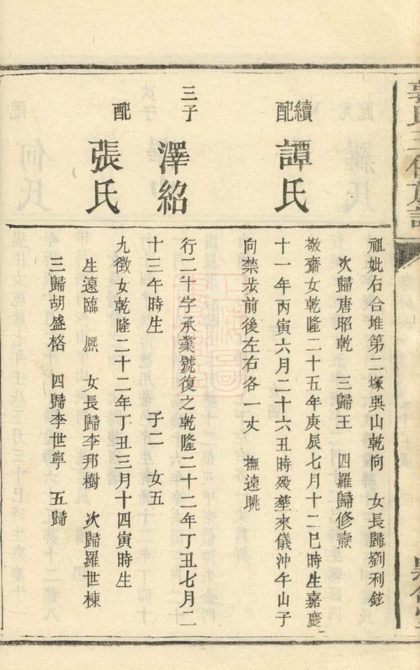 祖妣右合堆第二塚巽山乾向 女長歸劉利鉉
次歸唐昭乾 三歸王 四羅歸修燾
續配 譚氏
敬齋女乾隆二十五年庚辰七月十二巳時生嘉慶
十一年丙寅六月二十六丑時歿塟來儀沖午山子
向禁塟前後左右各一丈 撫遠眺
三子 澤紹
行二十字承業號復之乾隆二十二年丁丑七月二
十三午時生 子二 女五
配 張氏
九徵女乾隆二十二年丁丑三月十四寅時生
生遠臨 女長歸李邦樹 次歸羅世棟
三歸胡盛格 四歸李世寧 五歸